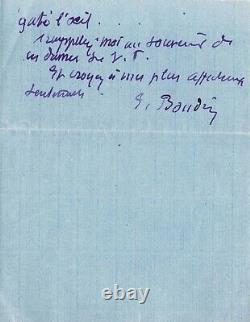 gâté l'œil...
rappelez-moi au souvenir de
ces dames de V. T.
Et croyez à mes plus affectueux
sentiments
E. Baudin